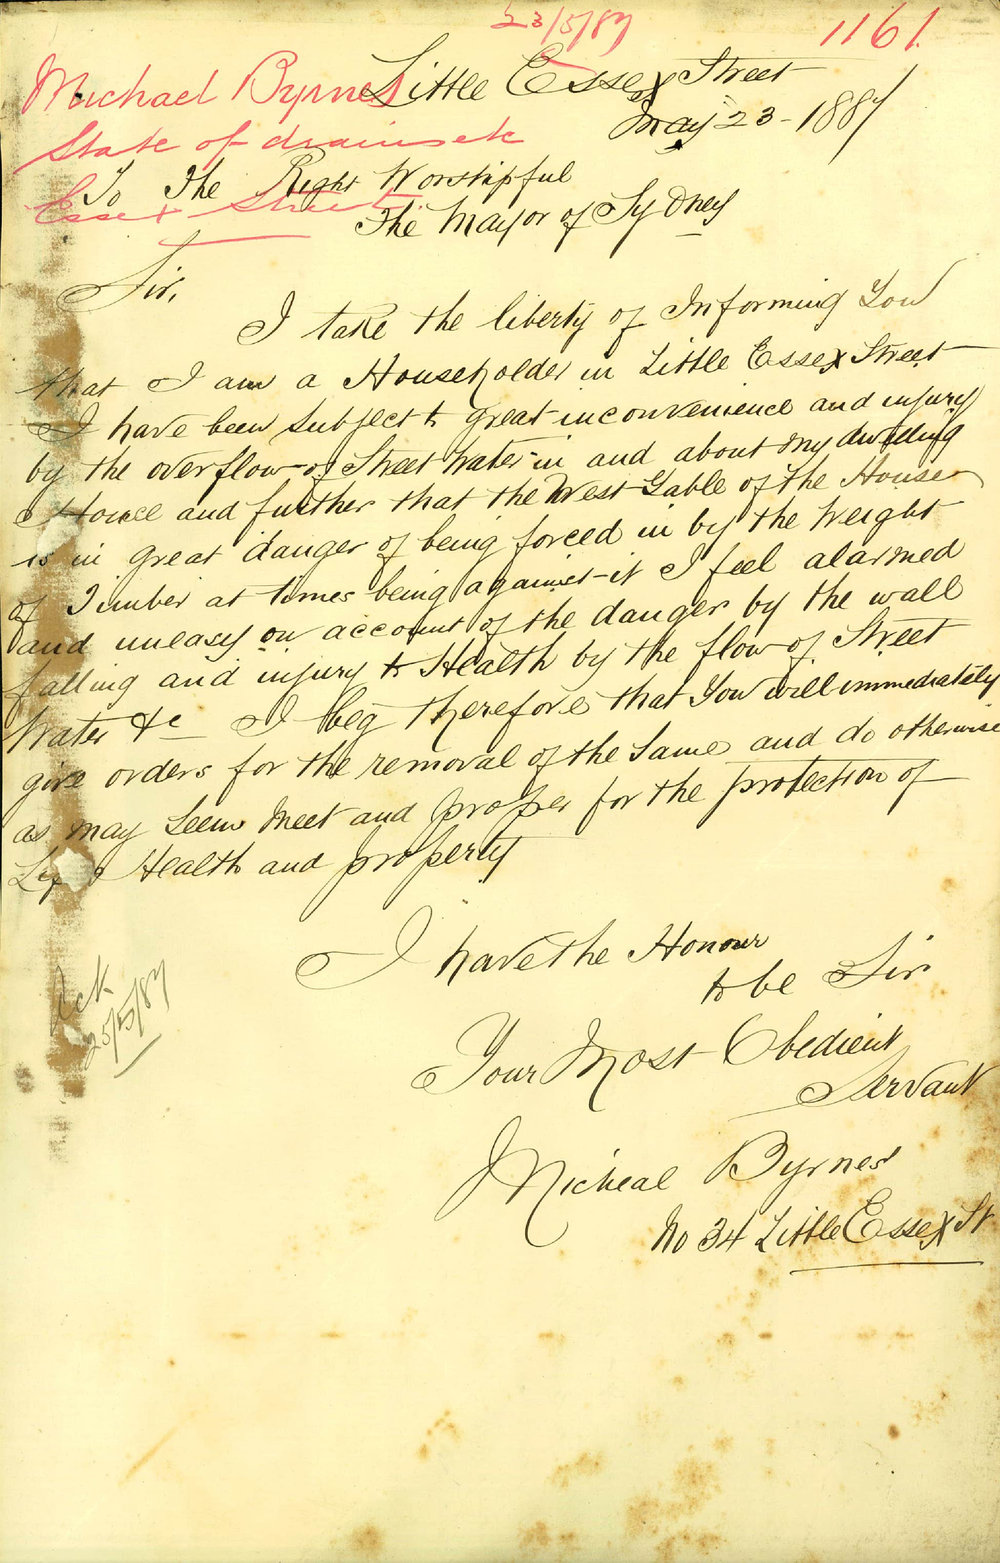 23/5/87
1161.
Michael Byrnes
State of drains etc
Essex Street
Little Essex Street
May 23 - 1887
To The Right Worshipful
The Mayor of Sydney
Sir,
I take the liberty of Informing You
that I am a Householder in Little Essex Street
I have been subject to great inconvenience and injury
by the overflow of Street water in and about my dwelling
House and further that the West Gable of the House
is in great danger of being forced in by the Weight
of Timber at times being against it I feel alarmed
and uneasy on account of the danger by the wall
falling and injury to Health by the flow of Street
Water &c I beg therefore that You will immediately
give orders for the removal of the Same and do otherwise
as may Seem Meet and proper for the protection of
Health and property
I have the Honour
to be Sir
Your Most Obedient
Servant
Micheal Byrnes
No 34 Little Essex St
Ack
25/5/87